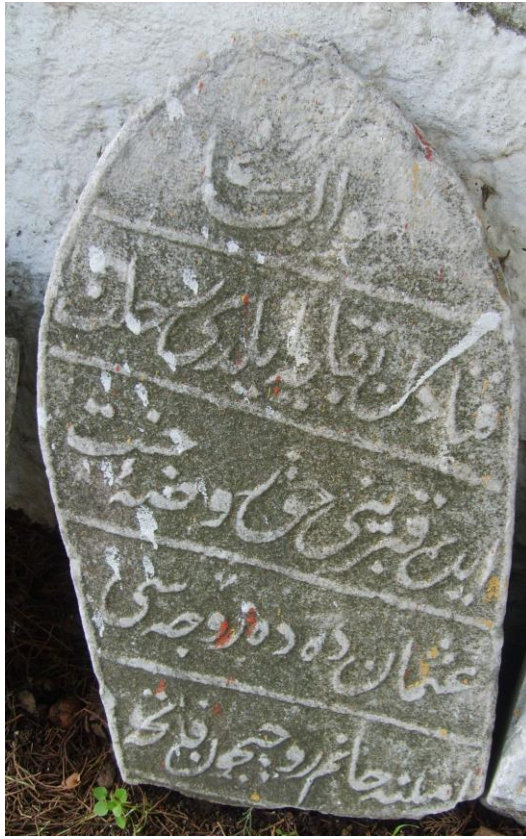 الباقی
فنادن بقایه ایلدی رحلت
ایده قبرینی حق روضهٔ جنت
عثمان دده زوجه سی
امنه خانم روحیچون فاتحه